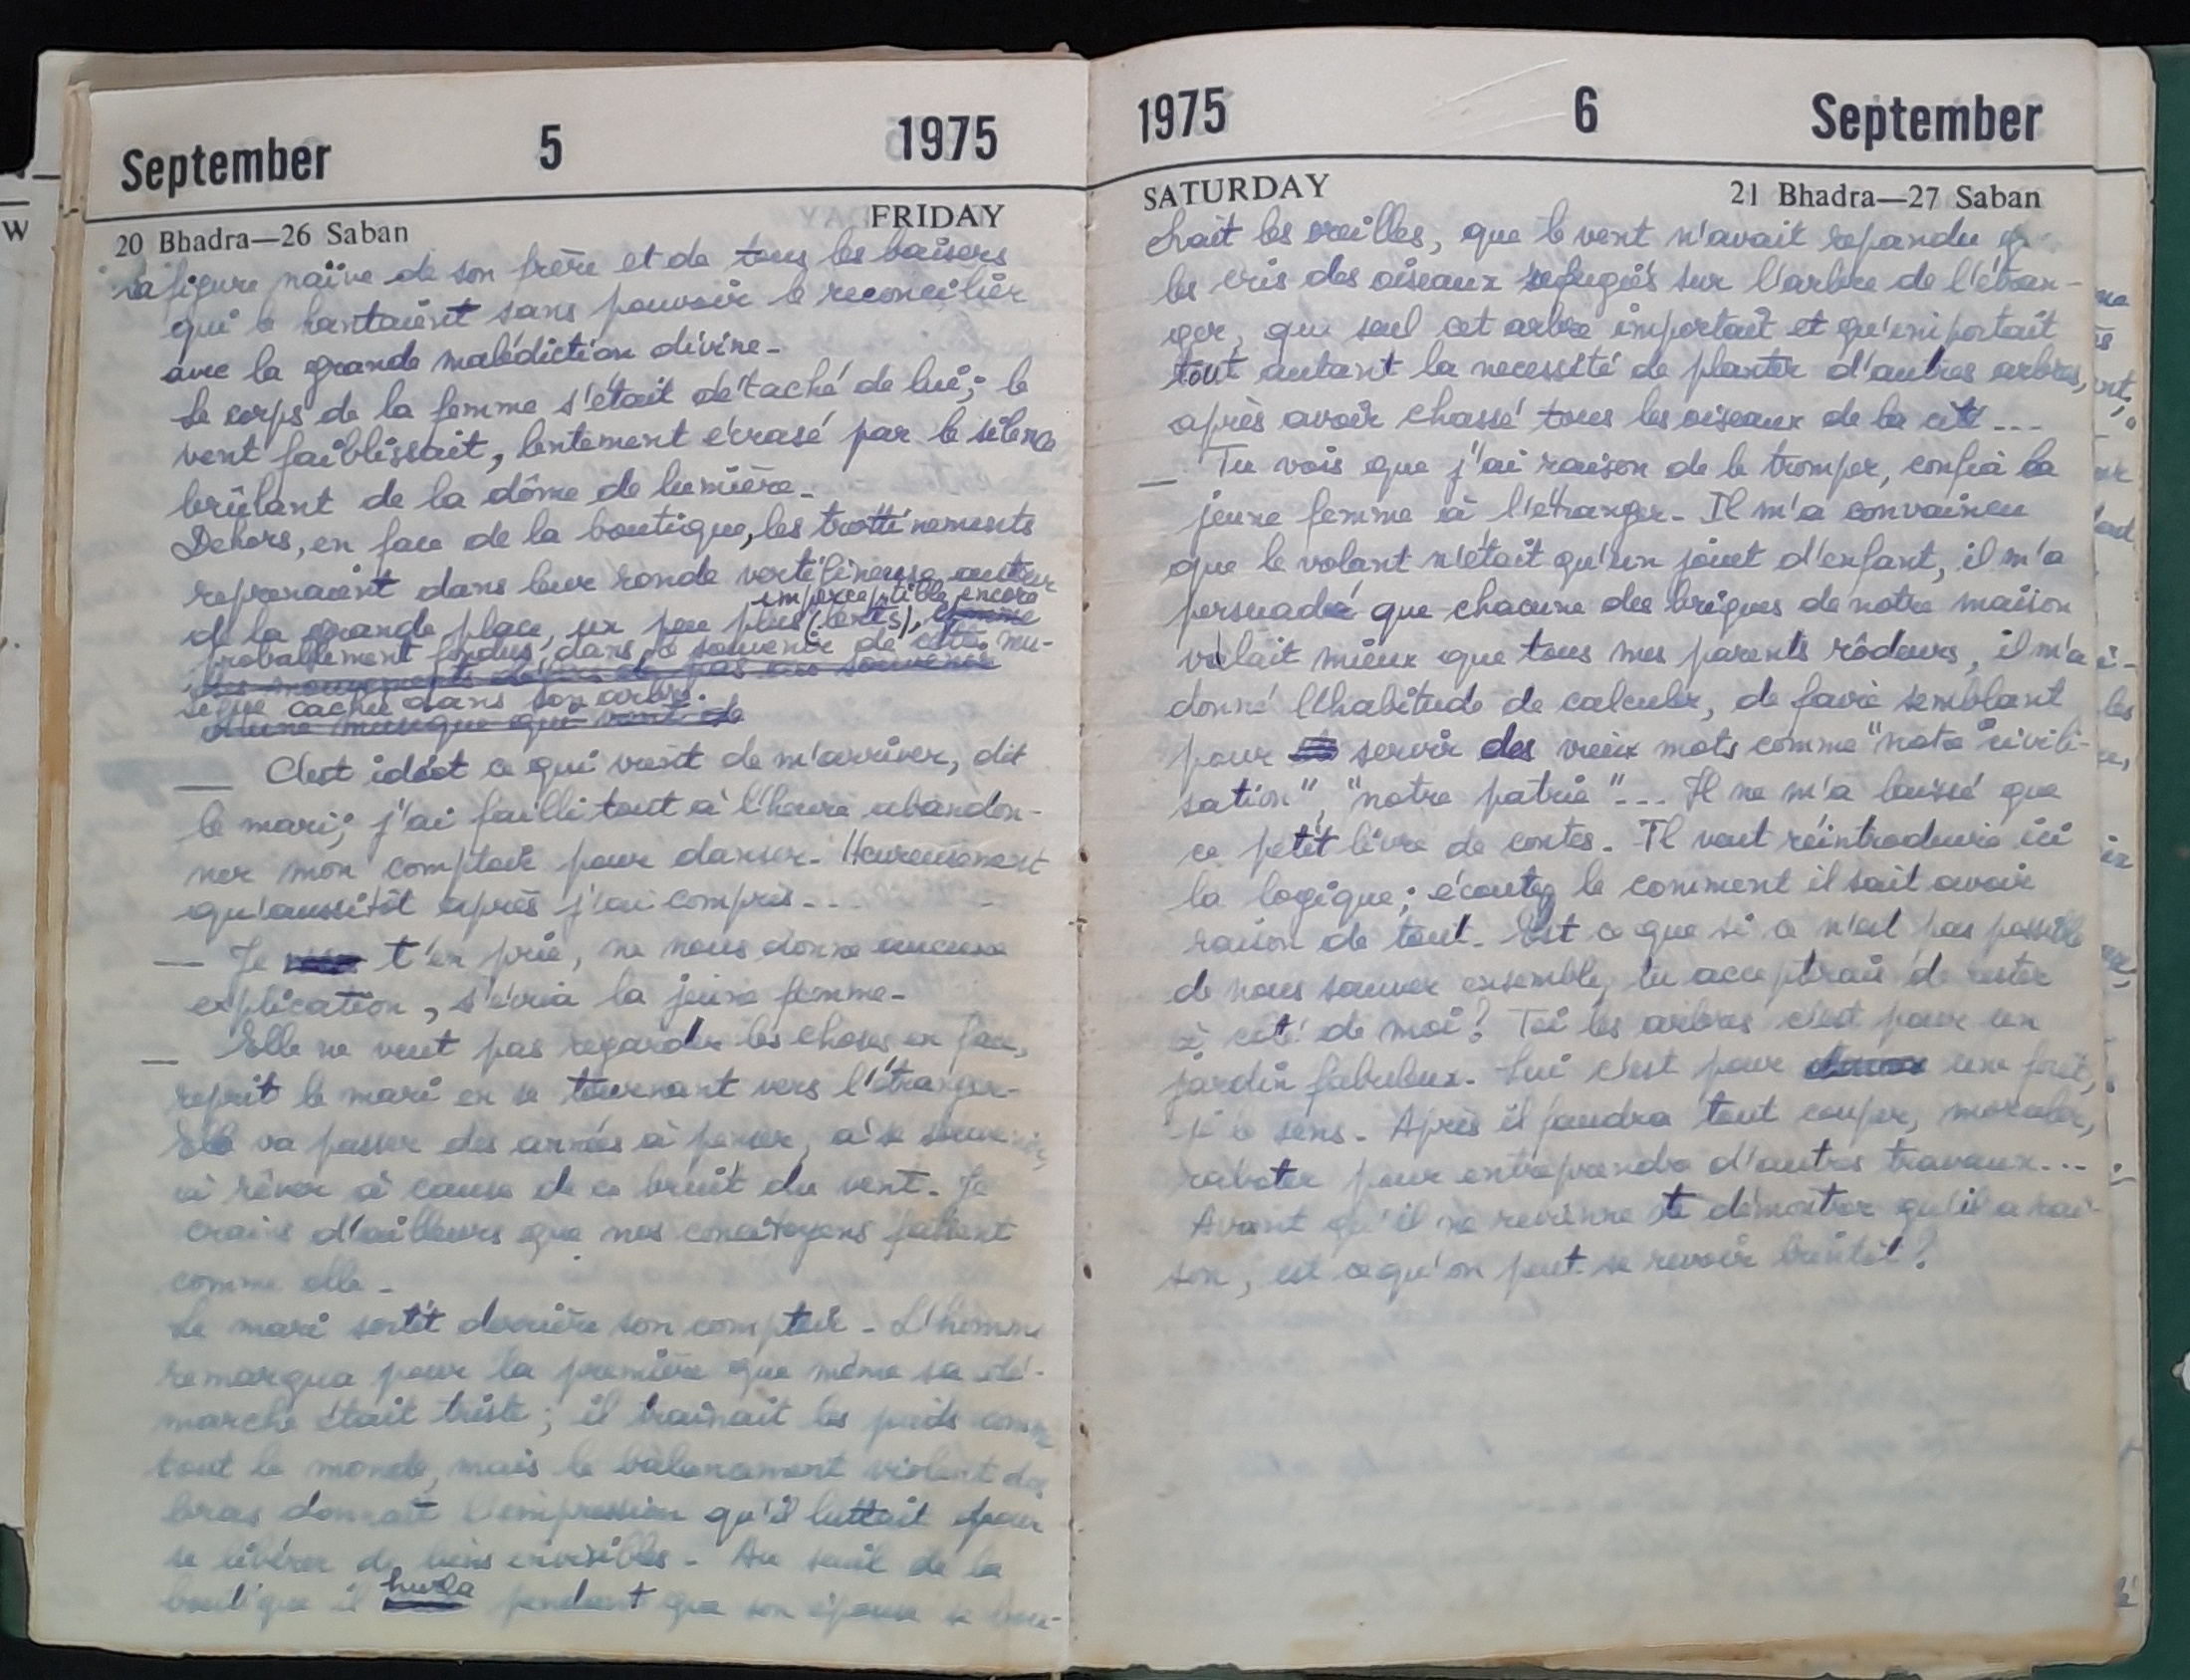 September 5 1975
20 Bhadra—26 Saban FRIDAY
la figure naïve de son frère et de tous les baisers
qui le hantaient sans pouvoir le reconcilier
avec la grande malédiction divine.
Le corps de la femme s'était détaché de lui; le
vent faiblissait, lentement écrasé par le silence
brûlant de la dôme de lumière.
Dehors, en face de la boutique, les trottinements
reprenaient dans leur ronde vertigineuse autour
imperceptible encore
de la grande place, un peu plus (lents), comme
probablement fondus dans le souvenir de cette mu-
des mouvements de pas au souvenir
sique cachée dans son arbre.
d'une musique qui vient de
— C'est idiot ce qui vient de m'arriver, dit
le mari; j'ai failli tout à l'heure abandon-
ner mon comptoir pour danser. Heureusement
qu'aussitôt après j'ai compris...
— Je t'en prie, ne nous donne aucune
explication, s'écria la jeune femme.
— Elle ne veut pas regarder les choses en face,
reprit le mari en se tournant vers l'étranger.
Elle va passer des années à penser, à se souvenir,
à rêver à cause de ce bruit du vent. Je
crains d'ailleurs que nos concitoyens fassent
comme elle.
Le mari sortit derrière son comptoir. L'homme
remarqua pour la première que même sa dé-
marche était triste; il trainait les pieds comme
tout le monde, mais le balancement violent des
bras donnait l'impression qu'il luttait pour
se libérer de liens invisibles. Au seuil de la
hurla
boutique il pendant que son épouse se bou-
1975 6 September
SATURDAY 21 Bhadra—27 Saban
chait les oreilles, que le vent n'avait repandu q
les cris des oiseaux refugiés sur l'arbre de l'étran-
ger, que seul cet arbre importait et qu'importait
tout autant la necessité de planter d'autres arbres,
après avoir chassé tous les oiseaux de la cité...
— Tu vois que j'ai raison de le tromper, confia la
jeune femme à l'étranger. Il m'a convaincu
que le volant n'était qu'un jouet d'enfant, il m'a
persuadé que chacune des briques de notre maison
valait mieux que tous mes parents rôdeurs, il m'a
donné l'habitude de calculer, de faire semblant
pour servir des vieux mots comme "notre civili-
sation", "notre patrie"... Il ne m'a laissé que
ce petit livre de contes. Il veut réintroduire ici
la logique; écoutez le comment il sait avoir
raison de tout. Est ce que si ce n'est pas possible
de nous sauver ensemble, tu accepterais de rester
à coté de moi? Toi les arbres c'est pour un
jardin fabuleux. Lui c'est pour une forêt,
je le sens. Après il faudra tout couper, morceler,
raboter pour entreprendre d'autres travaux...
Avant qu'il ne revienne te démontrer qu'il a rai-
son, est ce qu'on peut se revoir bientôt?